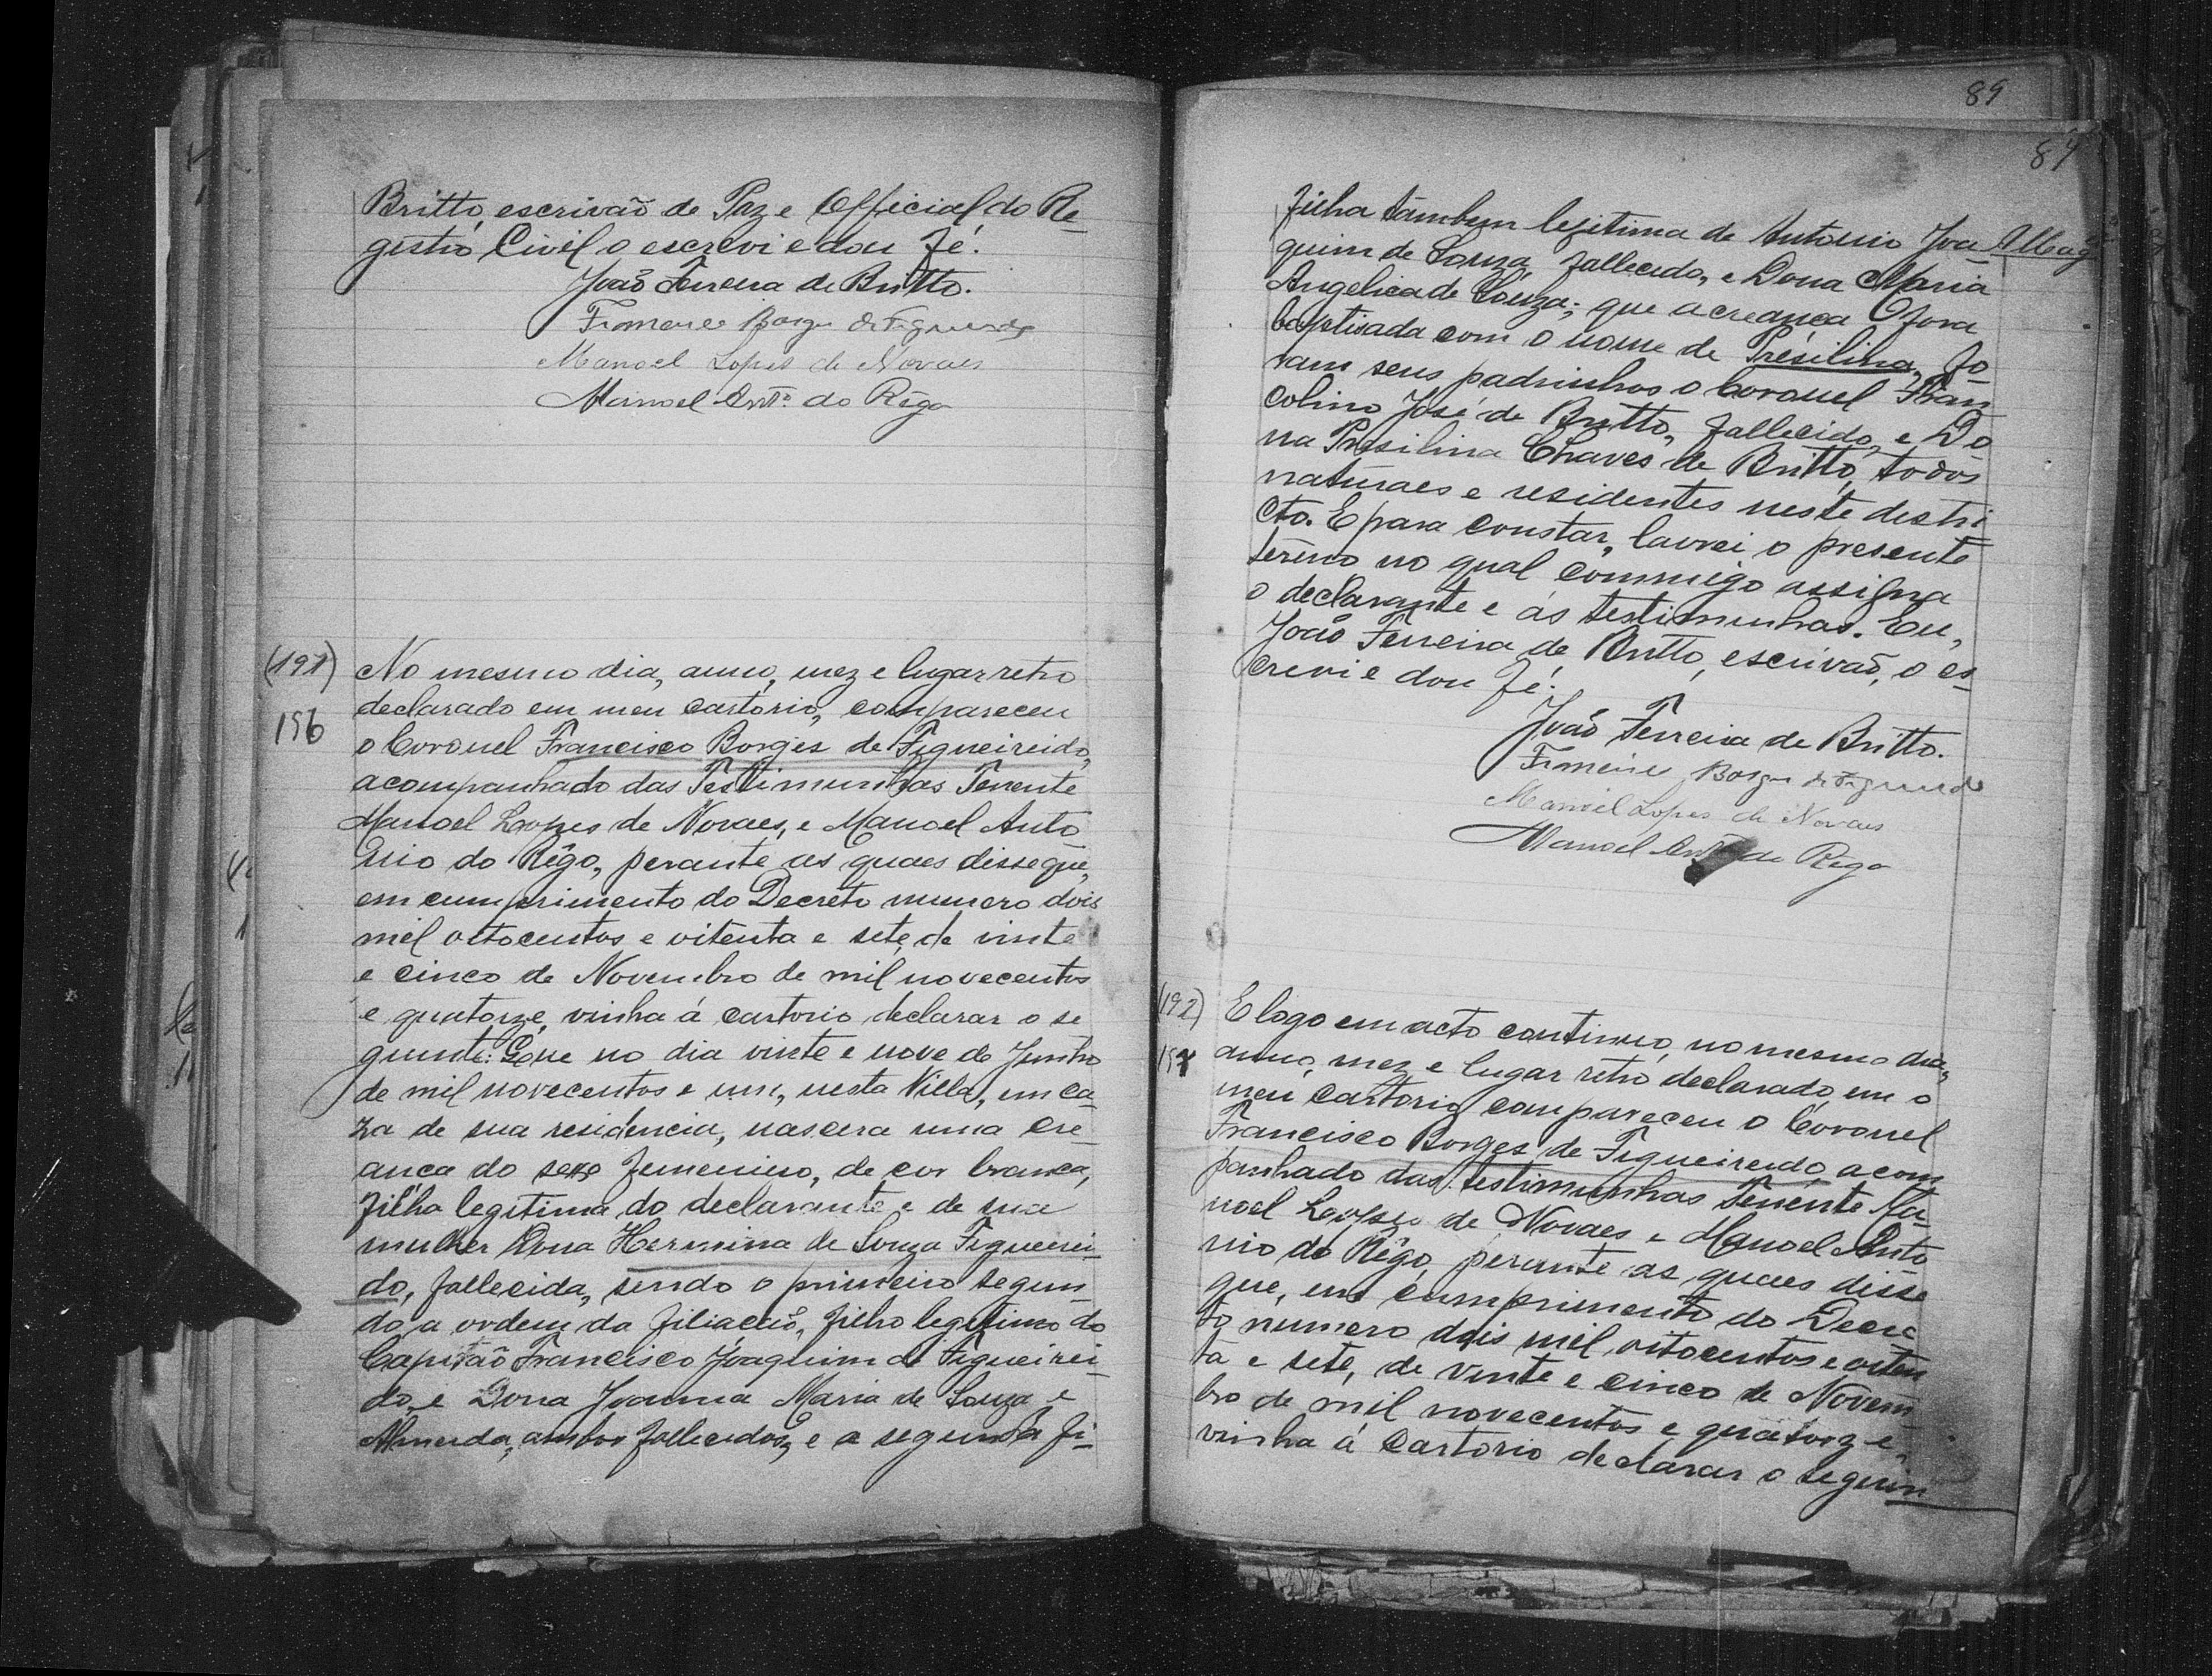 Britto, escrivaõ de Paz e Official do Re-
gistro Civil o escrevi e dou fé.
João Ferreira de Britto.
Francisco Borges de Figueredo
Manoel Lopes de Novaes
Manoel Antº do Rêgo
(191)
196
No mesmo dia, anno, mez e lugar retro
declarado em meu cartorio, compareceu
o Coronel Francisco Borges de Figueireido,
acompanhado das Testimunhas Tenente
Manoel Lopes de Novaes, e Manoel Anto
nio do Rêgo, perante as quaes disse que,
em cumprimento do Decreto numero dois
mil oitocentos e oitenta e sete, de vinte
e cinco de Novembro de mil novecentos
e quatorze, vinha á cartorio declarar o se
guinte: Que no dia vinte e nove de Junho
de mil novecentos e um, nesta Villa, em ca-
za de sua residencia, nascera uma cre-
ança do sexo femenino, de cor branca,
filha legitima do declarante e de sua
mulher Dona Hermina de Souza Figueirei-
do, fallecida, sendo o primeiro segun-
do a ordem da filiacão, filho legitimo do
Capitão Francisco Joaquim de Figueirei-
do, e Dona Joanna Maria de Souza e
Almeida, ambos fallecidos, e a segunda fi-
89
89
filha tambem legitima de Antonio Joa-
quim de Souza, fallecido, e Dona Maria
Angelica de Souza; que a creança fora
baptisada com o nome de Presilina, fo-
ram seus padrinhos o Coronel Fran
colino José de Britto, fallecido, e Do
na Presilina Chaves de Britto, todos
naturaes e residentes neste destri
cto. E para constar, lavrei o presente
termo no qual commigo assigna
o declarante e as testimunhas. Eu,
João Ferreira de Britto, escrivaõ, o es-
crevi e dou fé.
João Ferreira de Britto.
Francisco Borges de Figueredo
Manoel Lopes de Novaes
Manoel Antº do Rego
(192)
197
E logo em acto continuo, no mesmo dia,
anno, mez e lugar retro declarado, em o
meu cartorio compareceu o Coronel
Francisco Borges de Figueireido, acom
panhado das testimunhas Tenente Ma-
noel Lopes de Novaes e Manoel Anto
nio do Rêgo, perante as quaes disse
que, em cumprimento do Decre
to numero dois mil, oitocentos e oiten
ta e sete, de vinte e cinco de Novem
bro de mil novecentos e quatorze,
vinha á cartorio declarar o seguin